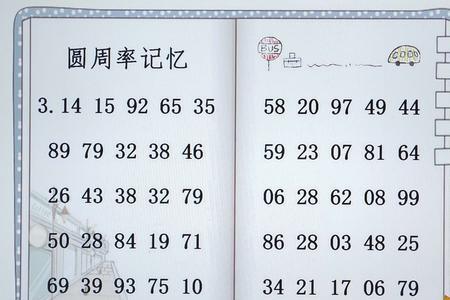 圆周率记忆
3.14 15 92 65 35
89 79 32 38 46
26 43 38 32 79
50 28 84 19 71
69 39 93 75 10
BUS
58 20 97 49 44
59 23 07 81 64
06 28 62 08 99
86 28 03 48 25
34 21 17 06 79